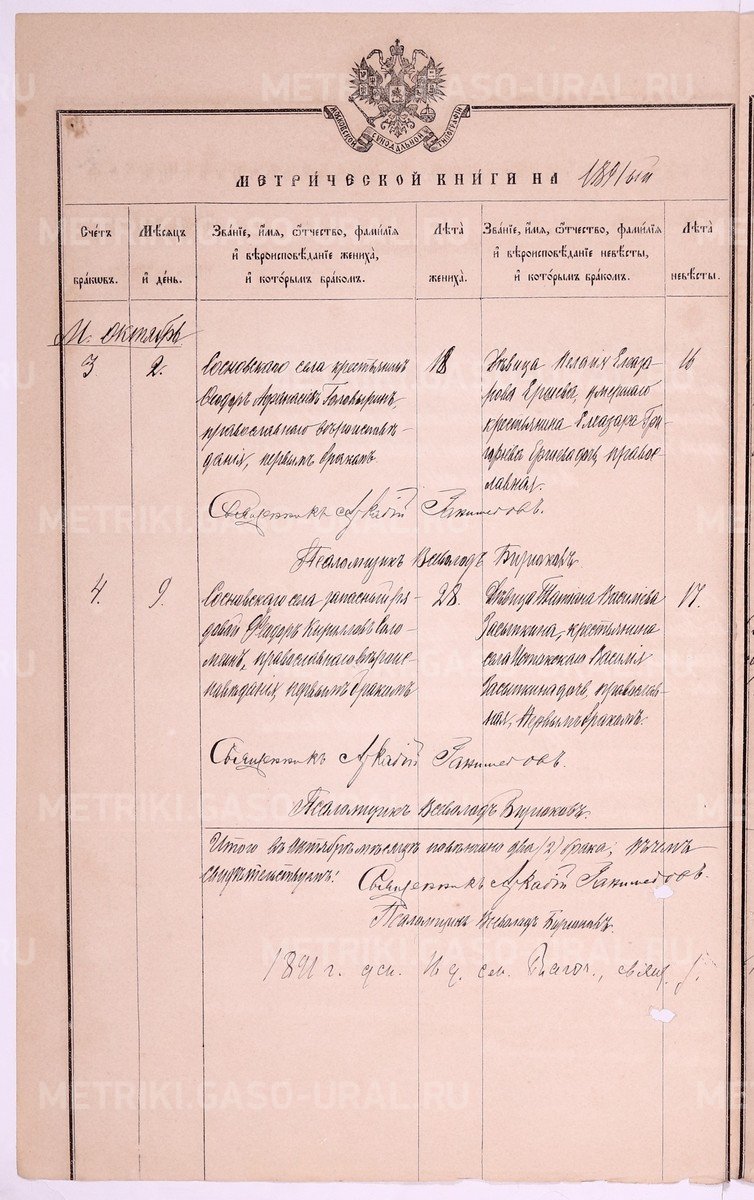 METRIKI.GASO-URAL.RU
МОСКОВСКОЙ СѴНОДАЛЬНОЙ ТИПОГРАФІИ
МЕТРИЧЕСКОЙ КНИГИ НА 1891 ый
Счетъ браковъ.
Мѣсяцъ и день.
Званіе, имя, ѿчество, фамилія и вѣроисповѣданіе жениха, и которымъ бракомъ.
Лѣта жениха.
Званіе, имя, ѿчество, фамилія и вѣроисповѣданіе невѣсты, и которымъ бракомъ.
Лѣта невѣсты.
М. Октябрь
3
2.
Сосновскаго села крестьянинъ
Ѳеодоръ
православнаго вѣроисповѣ-
данія, первымъ бракомъ
18
Дѣвица Пелагія Елеаза-
рова Ершева, умершаго
крестьянина Елеазара Гри-
горьева Ершева дочь, правос-
лавная.
16
Священникъ Аркадій
Псаломщикъ Всеволодъ Бирюковъ
4.
9.
Сосновскаго села запасный ря-
довой Ѳеодоръ Кирилловъ Соло-
минъ, православнаго вѣроис-
повѣданія, первымъ бракомъ
28.
Дѣвица Татіана Василіева
Засыпкина, крестьянина
села Василія
Засыпкина дочь, православ-
ная, первымъ бракомъ.
17.
Священникъ Аркадій
Псаломщикъ Всеволодъ Бирюковъ.
Итого въ октябрѣ мѣсяцѣ повѣнчано два /2/ брака; въ чемъ
свидѣтельствуемъ: Священникъ Аркадій
Псаломщикъ Всеволодъ Бирюковъ.
1891 г.